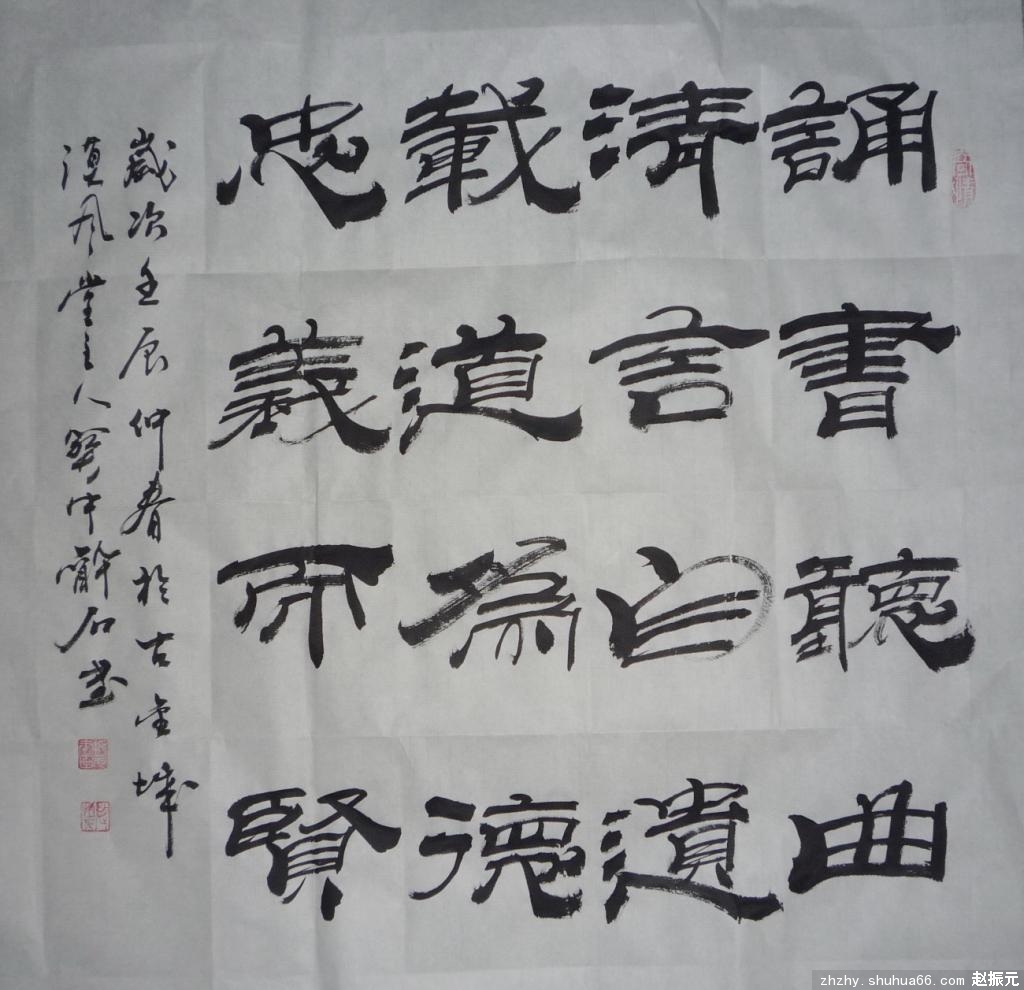 誦書聽曲
清言自遺
載道為德
忠義而賢
歲次壬辰仲春於古金城
漢風堂主人石書
zhzhy.shuhua66.com 赵振元